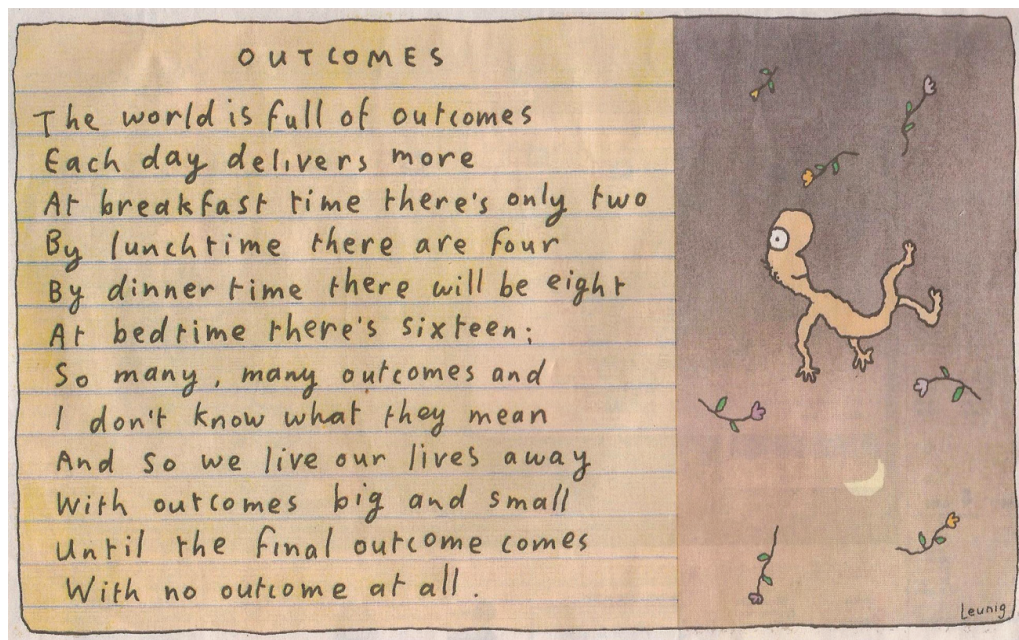 OUTCOMES
The world is full of outcomes
Each day delivers more
At breakfast time there's only two
By lunchtime there are four
By dinner time there will be eight
At bedtime there's sixteen;
So many, many outcomes and
I don't know what they mean
And so we live our lives away
With outcomes big and small
Until the final outcome comes
With no outcome at all.
Leunig